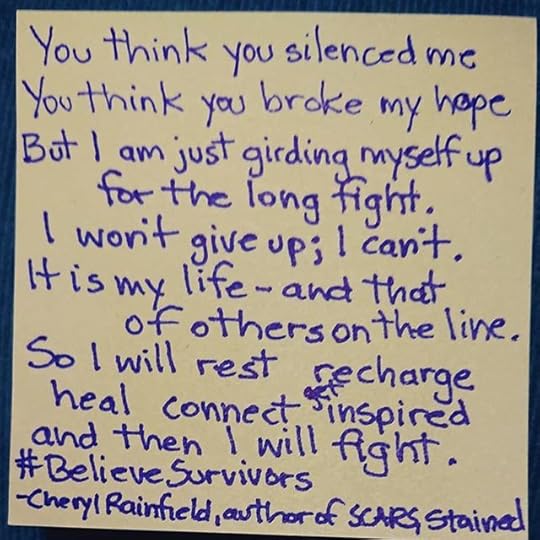 You think you silenced me
You think you broke my hope
But I am just girding myself up
for the long fight.
I won't give up; I can't.
It is my life - and that
of others on the line.
So I will rest recharge
heal connect get inspired
and then I will fight.
#BelieveSurvivors
-Cheryl Rainfield, author of SCARS, Stained